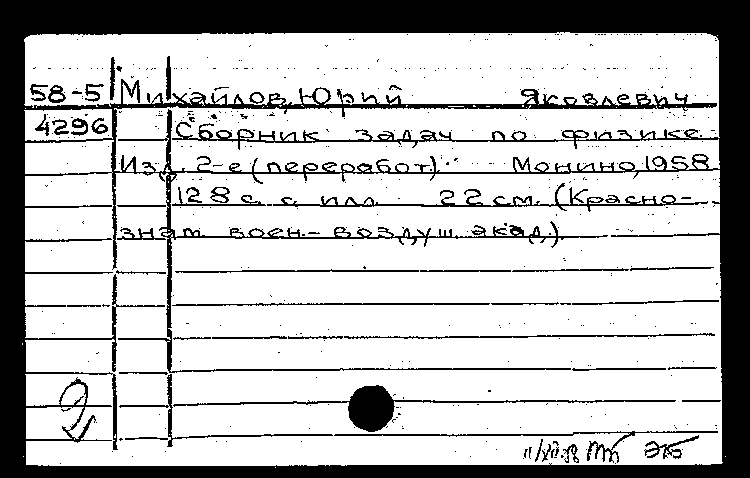 58-5 Михайлов, Юрий Яковлевич
4296 Сборник задач по физике.
Изд. 2-е (переработ). Монино, 1958
128 с. с илл. 22 см. (Красно-
знам. воен.- воздуш. акад.)
2